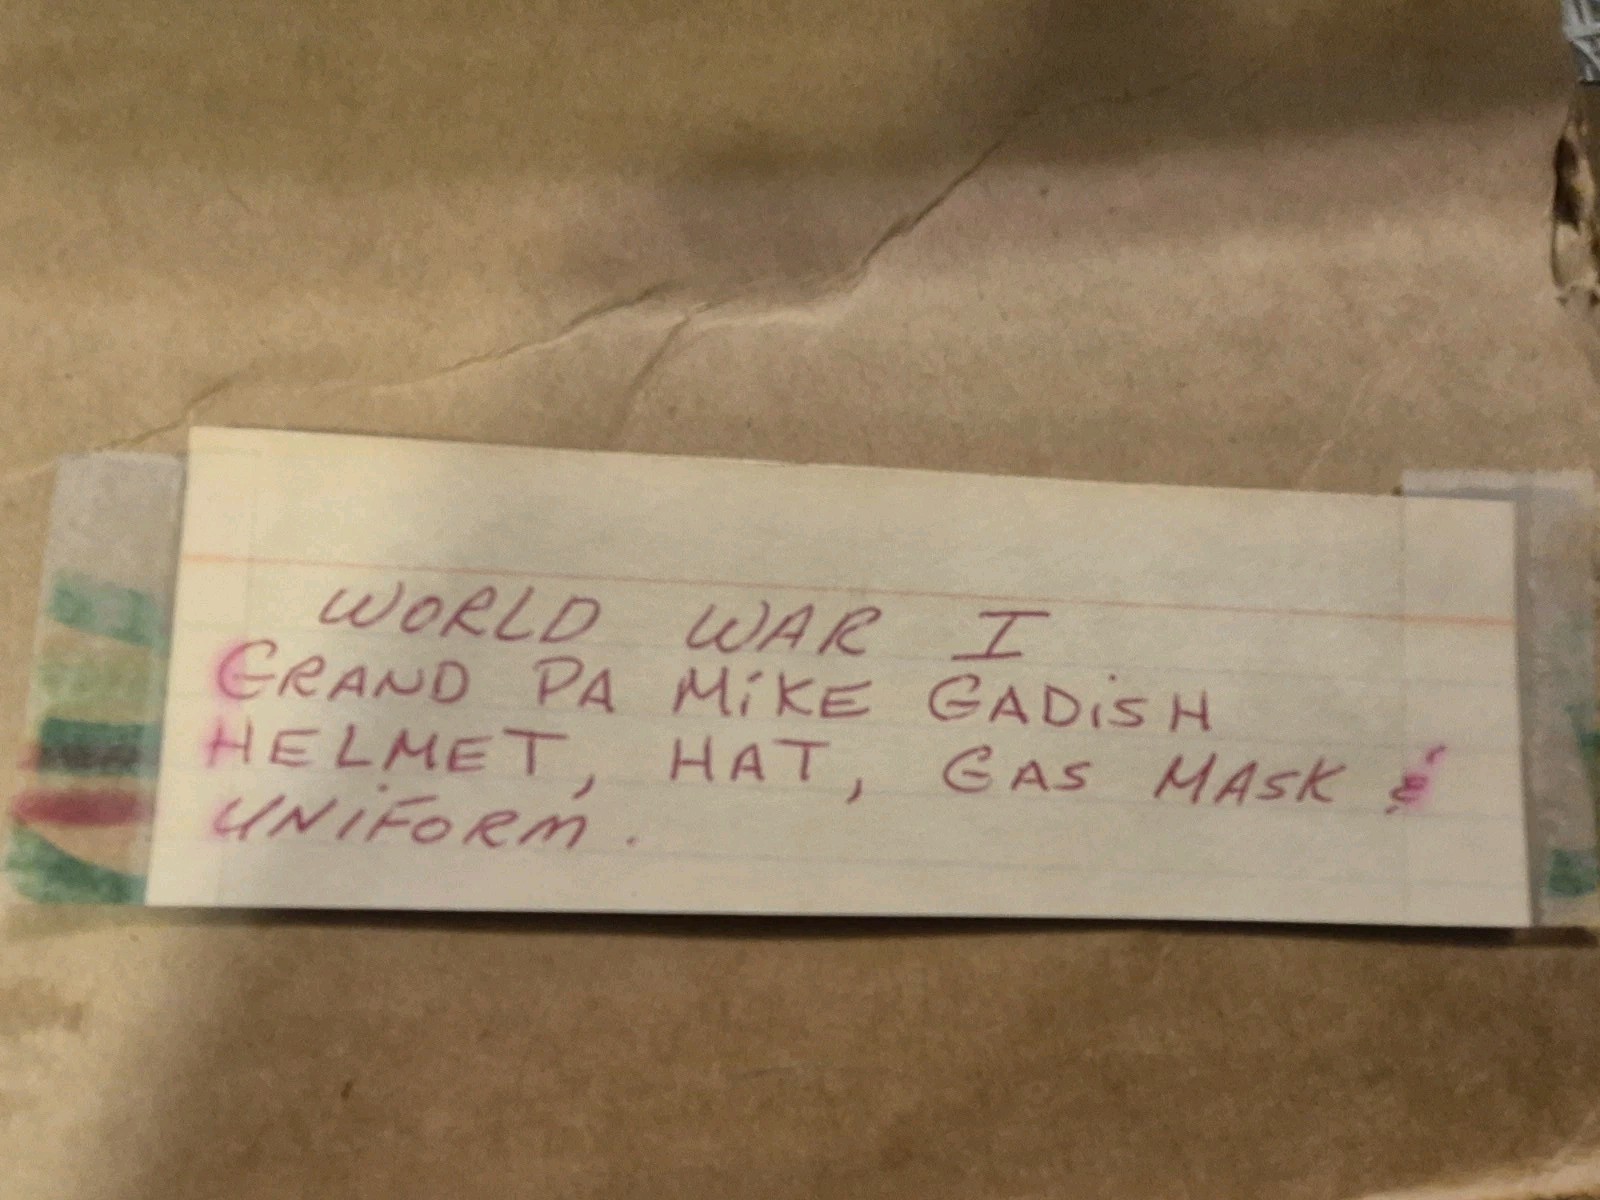 WORLD WAR I
GRAND PA MiKE GADiSH
HELMET, HAT, GAS MASK &
UNiFORM.